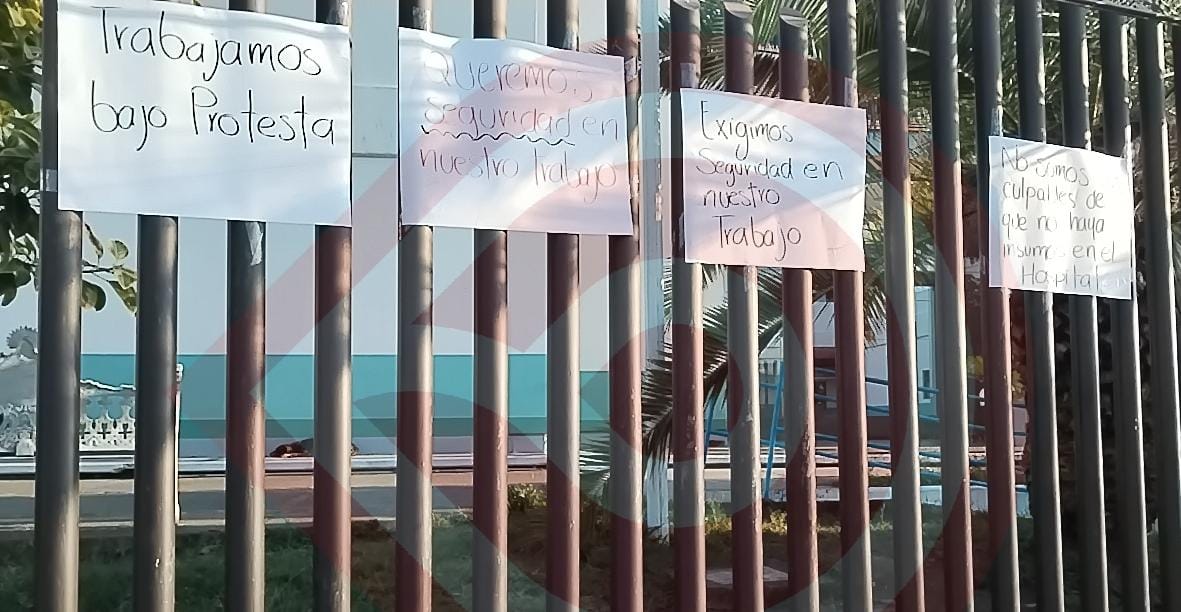 Trabajamos
bajo Protesta
Queremos
seguridad en
nuestro trabajo
Exigimos
Seguridad en
nuestro
Trabajo
No somos
culpables de
que no haya
insumos en el
Hospital